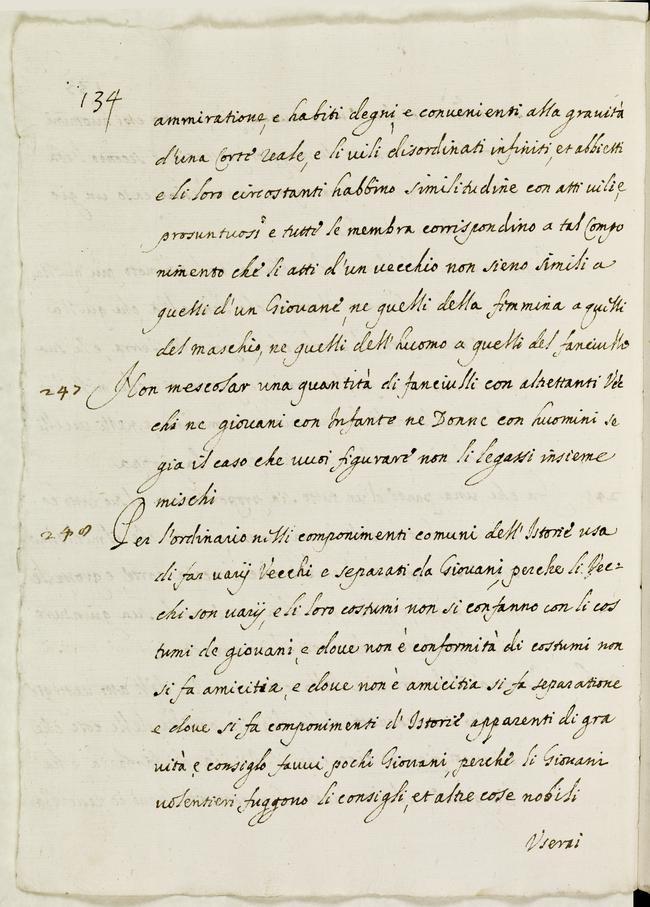 134
ammiratione, e habiti degni, e convenienti alla gravità
d'una Corte reale, e li vili disordinati infiniti, et abbietti
e li loro circostanti habbino similitudine con atti vili, e
prosuntuosi e tutte le membra corrispondino a tal Compo
nimento che li atti d'un vecchio non sieno simili a
quelli d'un Giovane, ne quelli della femmina a quelli
del maschio, ne quelli dell'huomo a quelli del fanciullo
247 Non mescolar una quantità di fanciulli con altrettanti Vec
chi ne giovani con Infante ne Donne con huomini se
gia il caso che vuoi figurare non li legassi insieme
mischi
248 Per l'ordinario nelli componimenti comuni dell'Istorie usa
di far varij Vecchi e separati da Giovani, perche li Vec-
chi son varij, e li loro costumi non si confanno con li cos
tumi de giovani, e dove non è conformità di costumi non
si fa amicitia, e dove non è amicitia si fa separatione
e dove si fa componimenti d'Istorie apparenti di gra
vità, e consiglo favvi pochi Giovani, perchè li Giovani
volentieri fuggono li consigli, et altre cose nobili
Userai